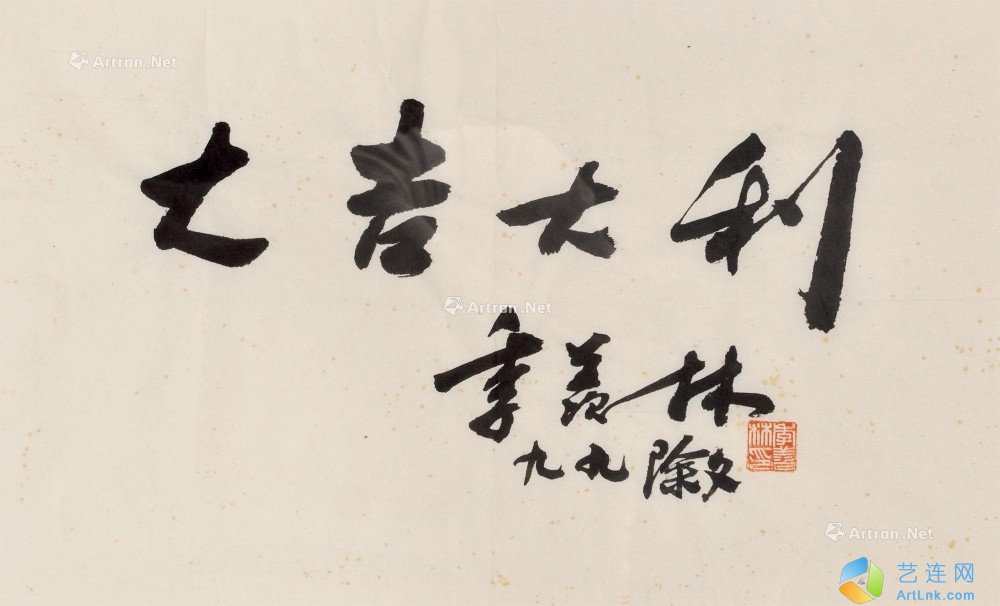 Artron.Net
大吉大利
Artron.Net
季羡林
九九除夕
季羡林印
Artron.Net
艺连网
ArtLnk.com